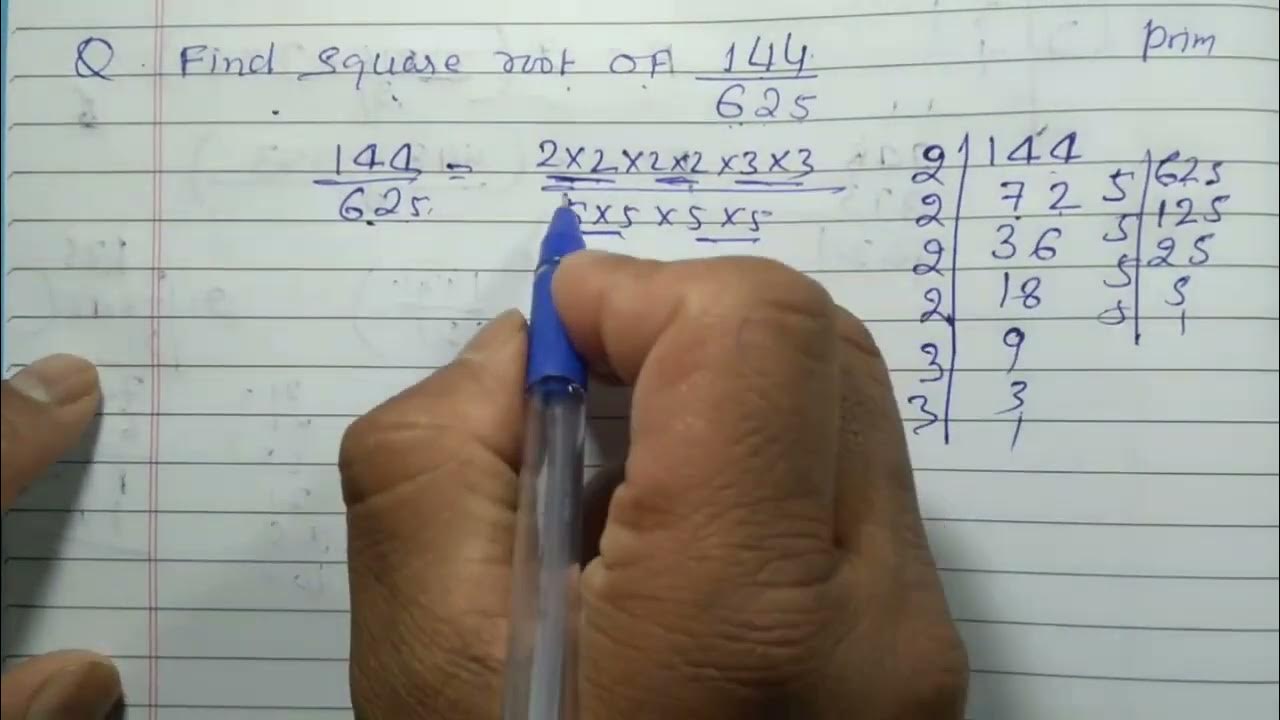 Q. Find square root of 144/625
Prim
144/625 = 2×2×2×2×3×3 / 5×5×5×5
2 | 144
2 | 72
2 | 36
2 | 18
3 | 9
3 | 3
1
5 | 625
5 | 125
5 | 25
5 | 5
1